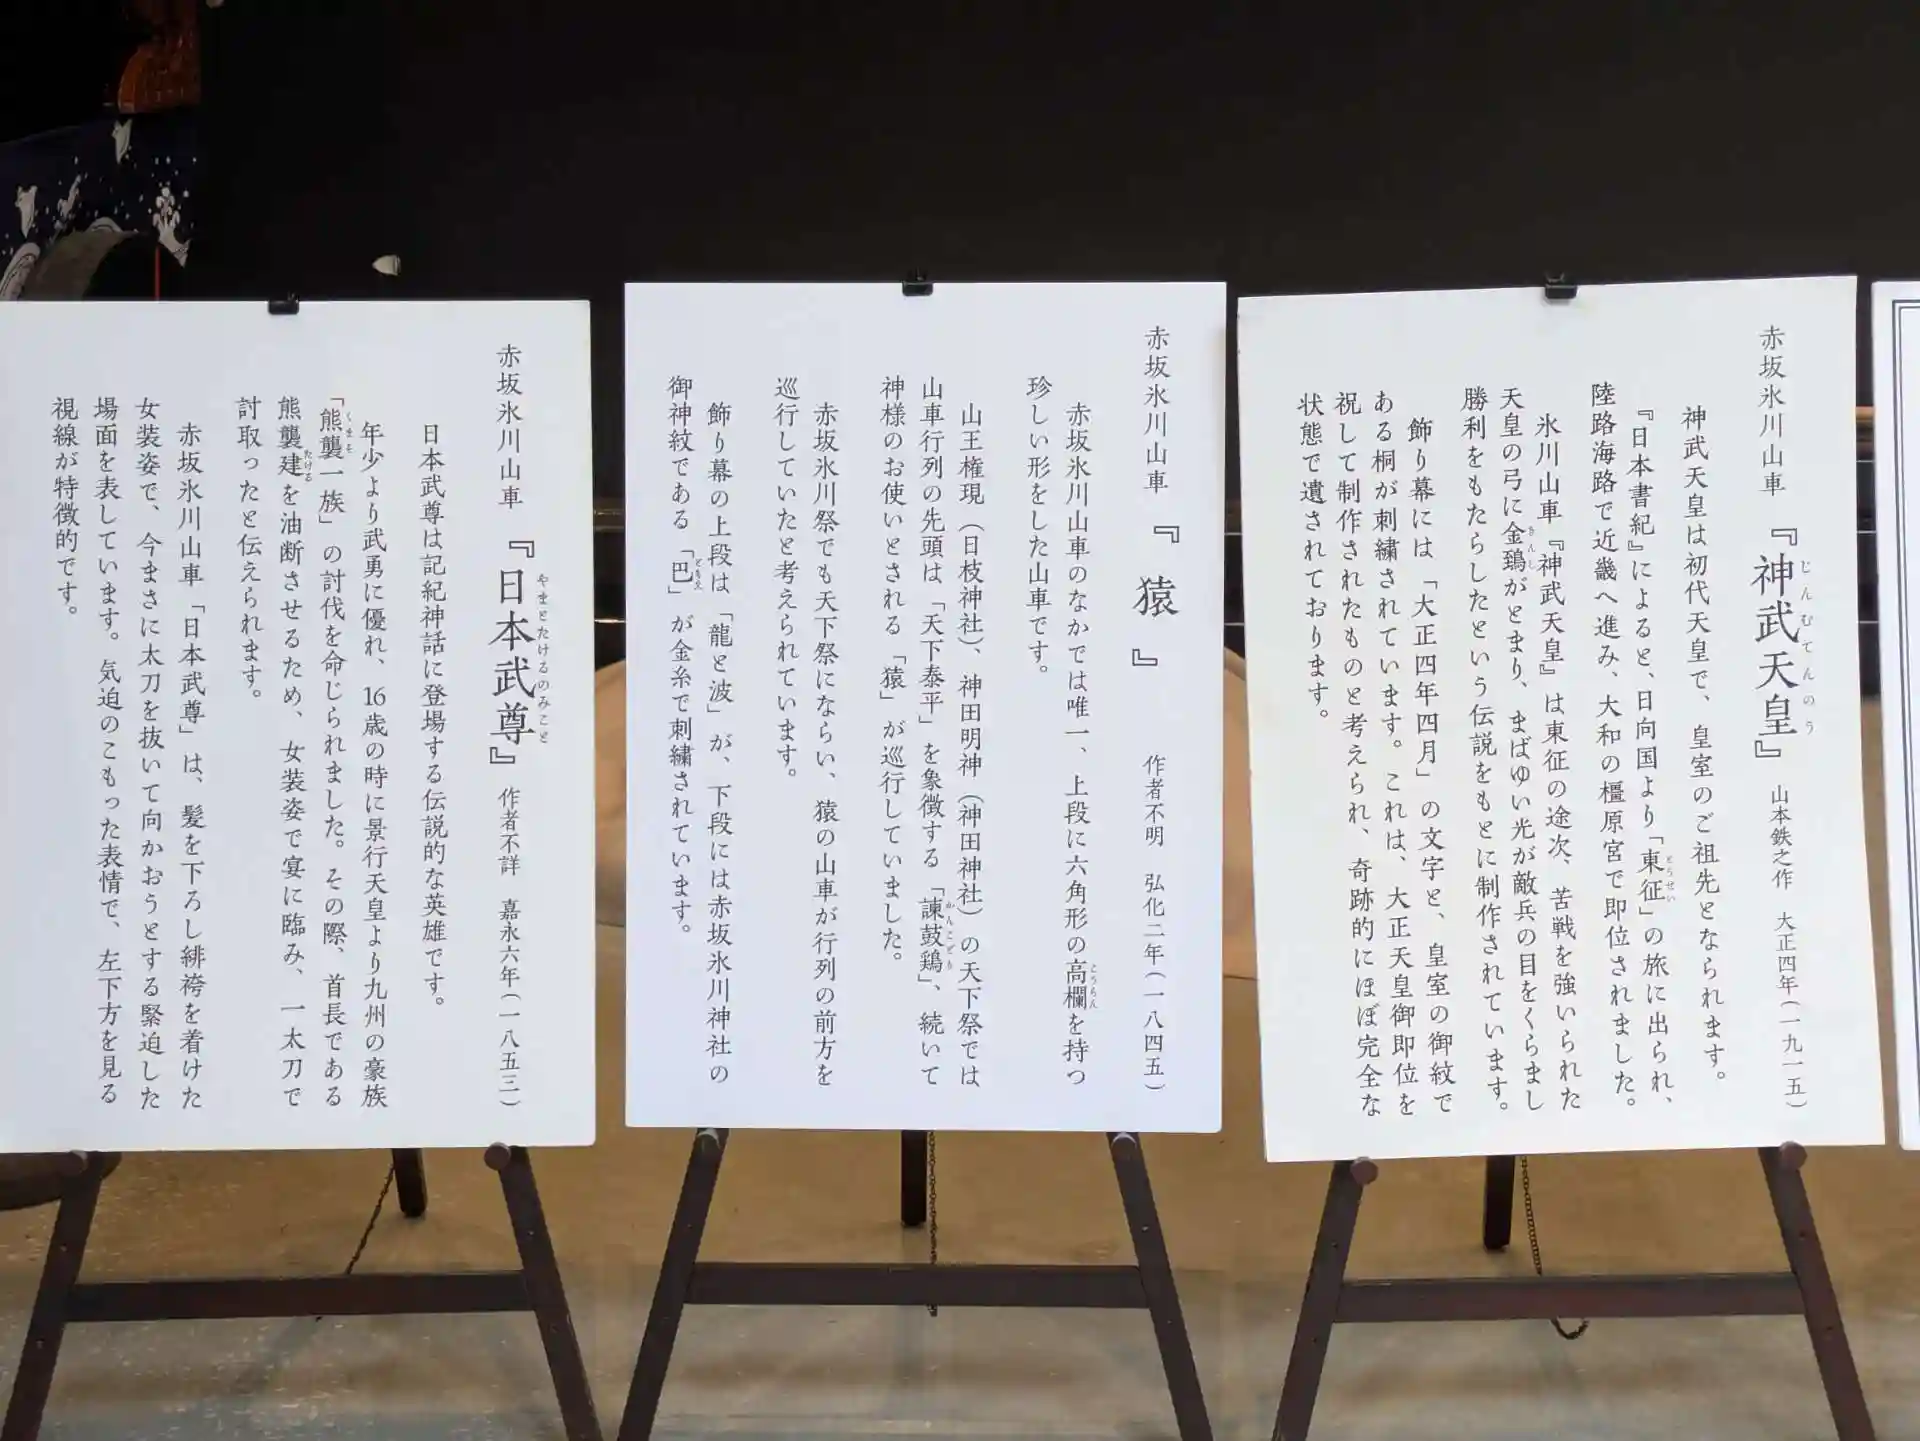 赤坂氷川山車 『神武天皇』 山本鉄之作 大正四年(一九一五)
じんむてんのう
神武天皇は初代天皇で、皇室のご祖先となられます。
『日本書紀』によると、日向国より「東征」の旅に出られ、
とうせい
陸路海路で近畿へ進み、大和の橿原宮で即位されました。
氷川山車『神武天皇』は東征の途次、苦戦を強いられた
天皇の弓に金鵄がとまり、まばゆい光が敵兵の目をくらまし
きんし
勝利をもたらしたという伝説をもとに制作されています。
飾り幕には「大正四年四月」の文字と、皇室の御紋で
ある桐が刺繍されています。これは、大正天皇御即位を
祝して制作されたものと考えられ、奇跡的にほぼ完全な
状態で遺されております。
赤坂氷川山車 『猿』 作者不明 弘化二年(一八四五)
赤坂氷川山車のなかでは唯一、上段に六角形の高欄を持つ
こうらん
珍しい形をした山車です。
山王権現(日枝神社)、神田明神(神田神社)の天下祭では
山車行列の先頭は「天下泰平」を象徴する「諫鼓鶏」、続いて
かんこどり
神様のお使いとされる「猿」が巡行していました。
赤坂氷川祭でも天下祭にならい、猿の山車が行列の前方を
巡行していたと考えられています。
飾り幕の上段は「龍と波」が、下段には赤坂氷川神社の
御神紋である「巴」が金糸で刺繍されています。
ともえ
赤坂氷川山車 『日本武尊』 作者不詳 嘉永六年(一八五三)
やまとたけるのみこと
日本武尊は記紀神話に登場する伝説的な英雄です。
年少より武勇に優れ、16歳の時に景行天皇より九州の豪族
「熊襲一族」の討伐を命じられました。その際、首長である
くまそ
熊襲建を油断させるため、女装姿で宴に臨み、一太刀で
たける
討取ったと伝えられます。
赤坂氷川山車「日本武尊」は、髪を下ろし緋袴を着けた
女装姿で、今まさに太刀を抜いて向かおうとする緊迫した
場面を表しています。気迫のこもった表情で、左下方を見る
視線が特徴的です。